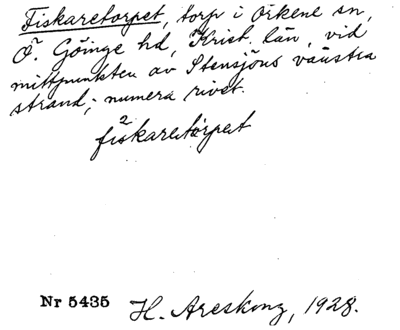 Fiskaretorpet, torp i Örkene sn,
Ö. Göinge hd, Krist. län, vid
mittpunkten av Stensjöns västra
strand; numera rivet.
fi2skaretòrpet
Nr 5435 H. Areskoug, 1928.